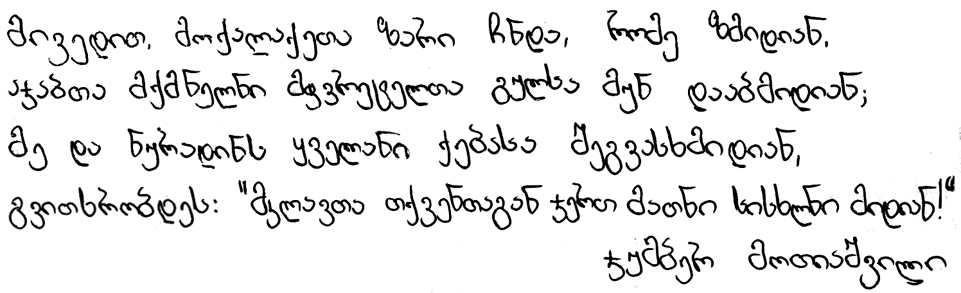 მივედით, მოქალაქეთა ზარი ჩნდა, რომე ზმიდიან,
აჯაბთა მქმნელნი მჭვრეტელთა გულსა მუნ დააბმიდიან;
მე და ნურადინს ყველანი ქებასა შეგვასხმიდიან,
გვითხრობდეს: "მკლავთა თქვენთაგან ჯერთ მათნი სისხლნი მიდიან!"
ჯუმბერ მოთიაშვილი